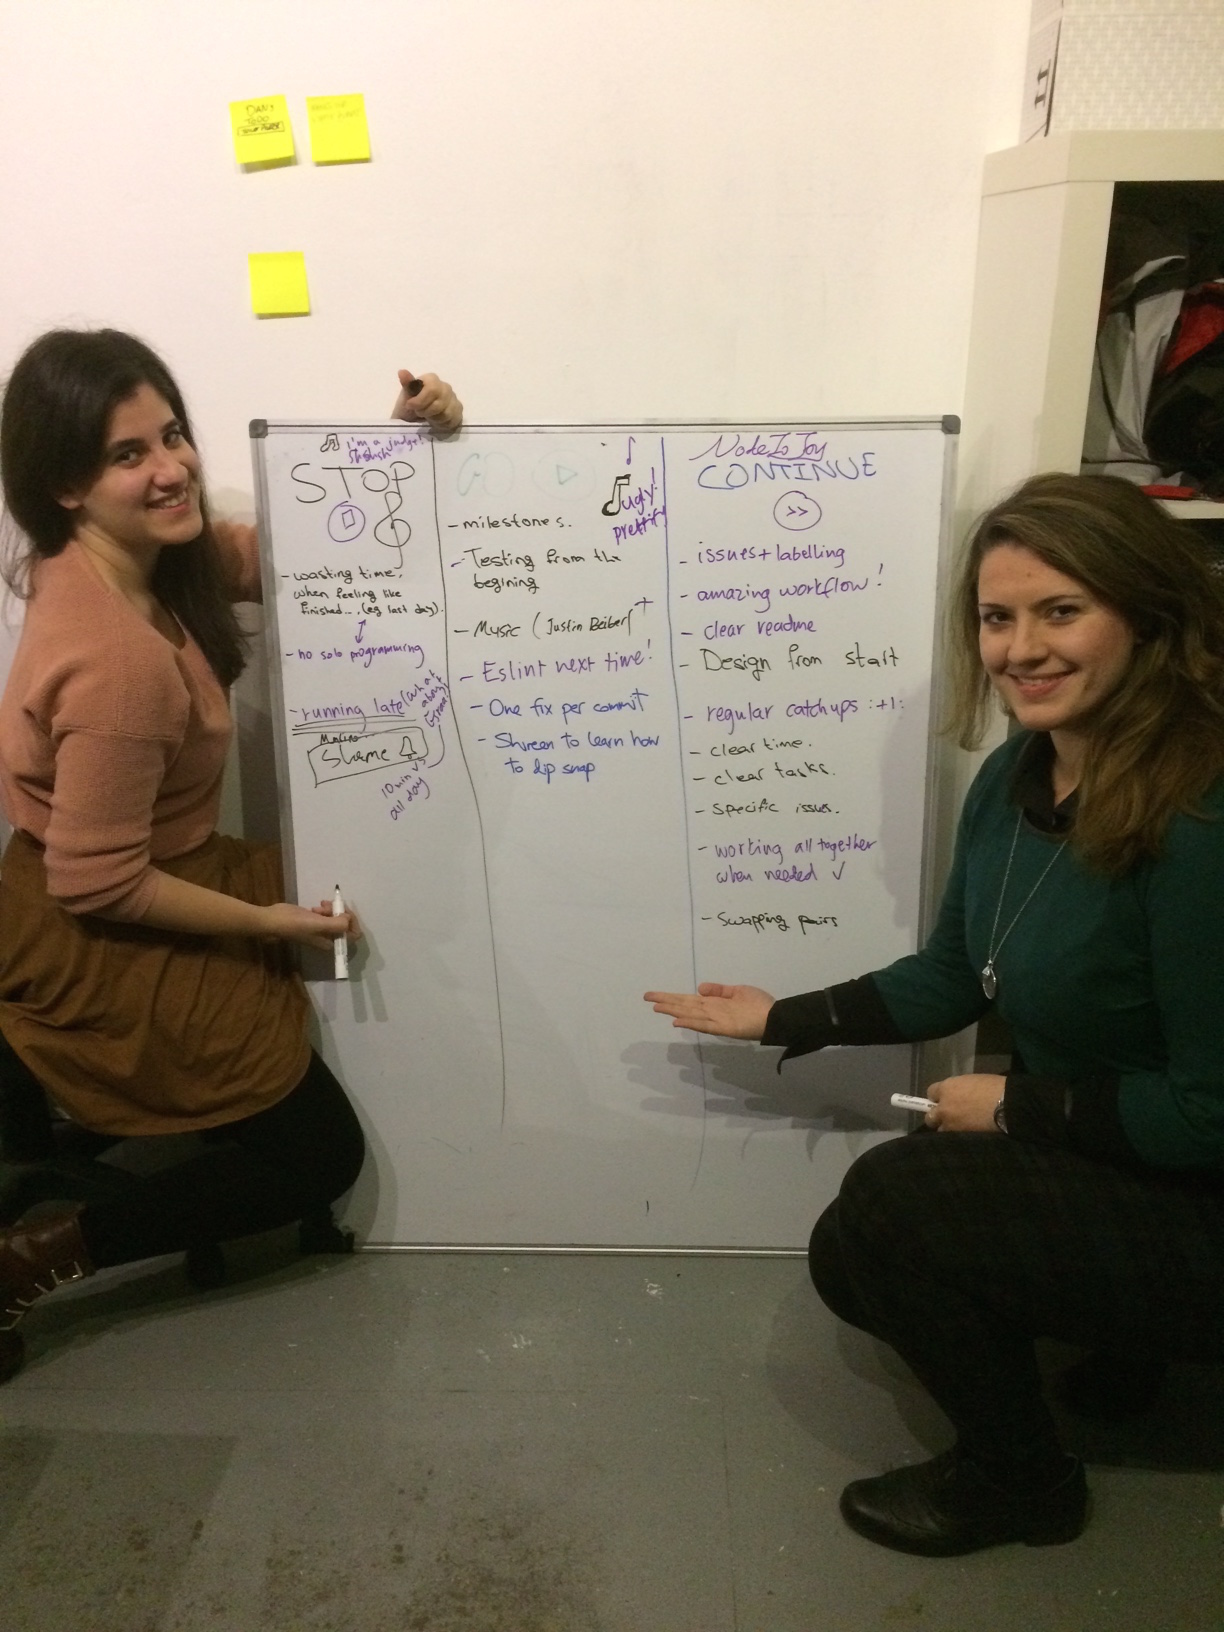 DANY
TODO
I'm a judge!
STOP
- wasting time,
when feeling like
finished... (eg last day).
- no solo programming
- running late (what
about
Shame
10 min
all day
GO
ugly!
prettify
- milestones.
- Testing from the
begining
- Music (Justin Beiber)+
- Eslint next time!
- One fix per commit
- Shireen to learn how
to dip snap
NodeToJoy
CONTINUE
>>
- issues+labelling
- amazing workflow!
- clear readme
- Design from start
- regular catchups :+1:
- clear time.
- clear tasks.
- specific issues.
- working all together
when needed ✓
- Swapping pairs